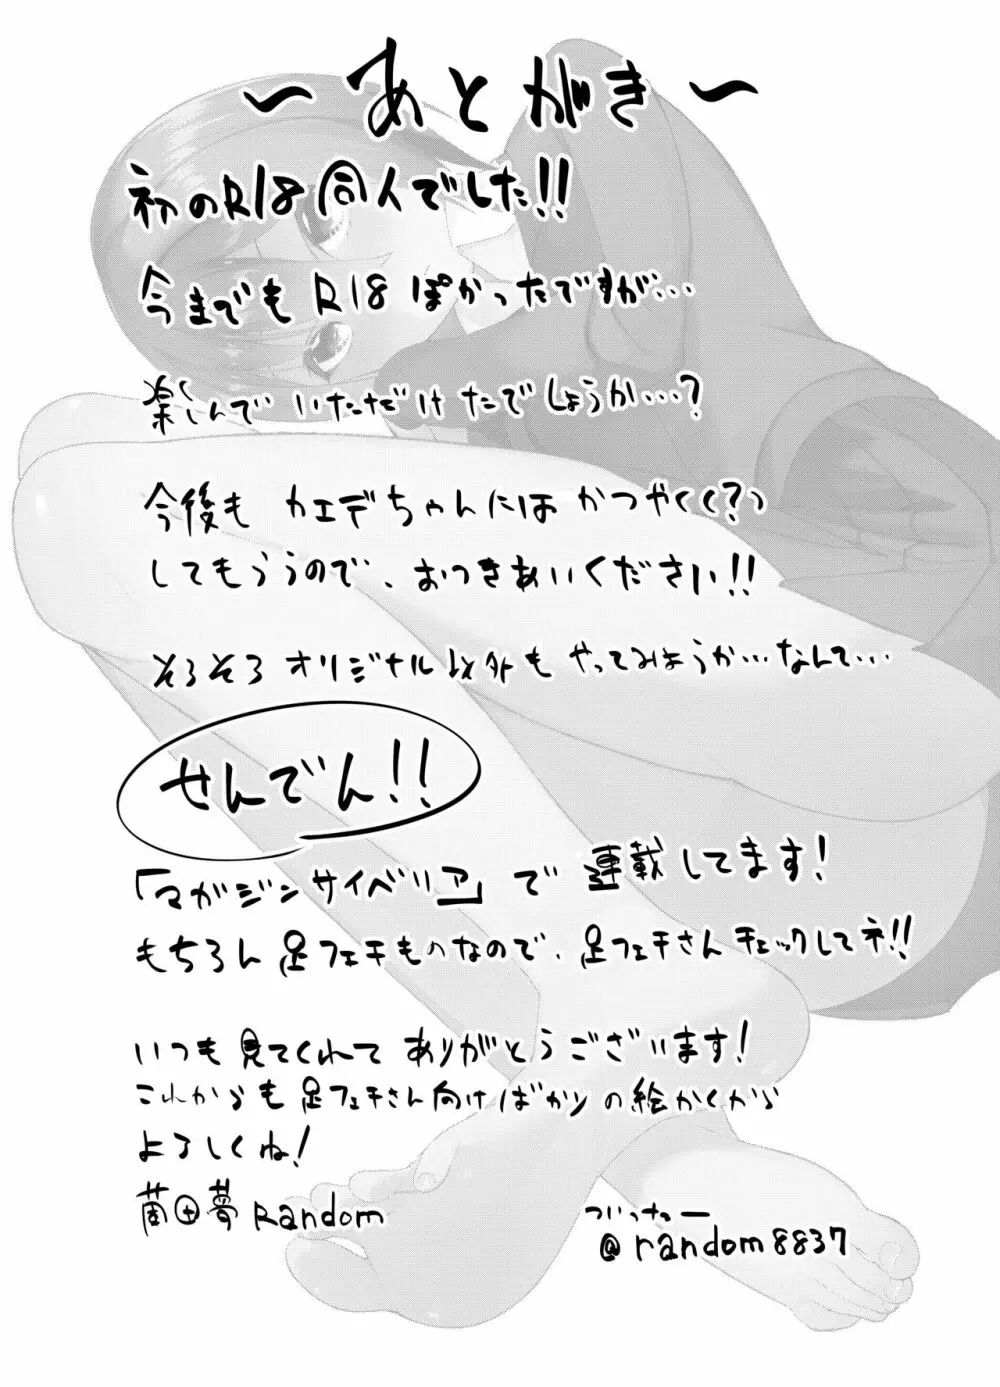 ～あとがき～
初のR18同人でした!!
今までもR18ぽかったですが...
楽しんでいただけたでしょうか...?
今後もカエデちゃんにはかつやく(?)
してもらうので、おつきあいください!!
そろそろオリジナル以外もやってみようか...なんて...
せんでん!!
「マガジンサイベリア」で連載してます!
もちろん足フェチものなので、足フェチさんチェックしてネ!!
いつも見てくれてありがとうございます!
これからも足フェチさん向けばかりの絵かくから
よろしくね!
菌田夢Random
ついったー
@random8837